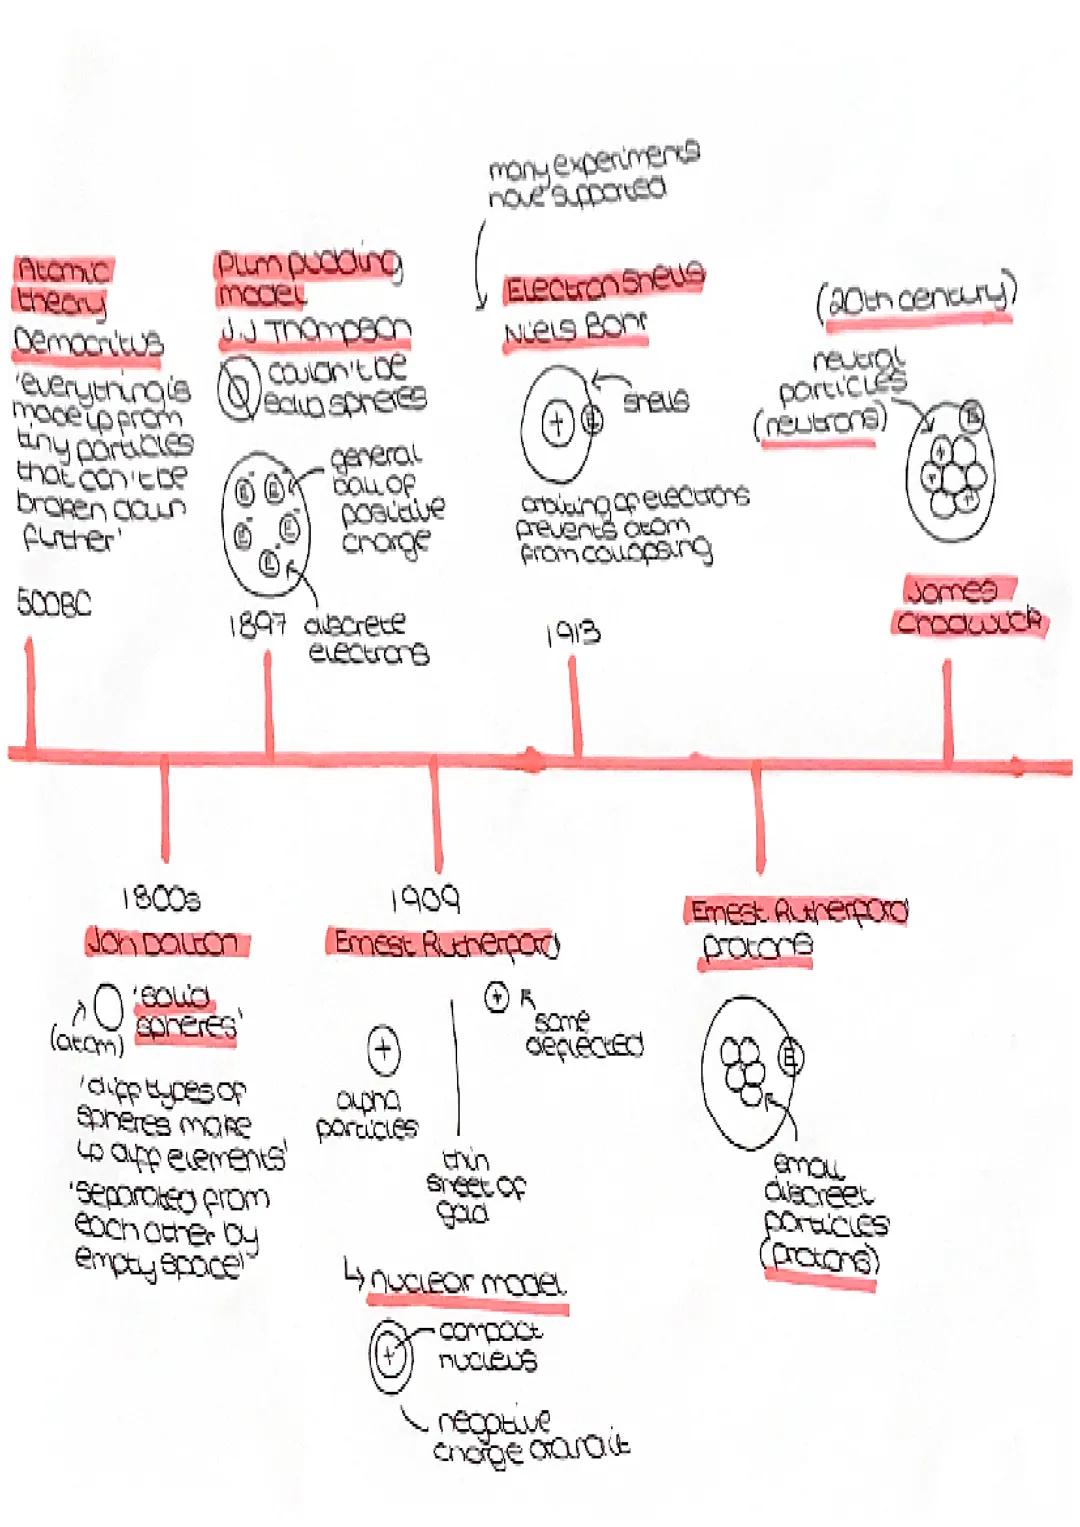 many experiments
have supported
Atomic
theory
Democritus
'everything is
made up from
tiny particles
that can't be
broken down
further'
500BC
Plum pudding
model
J.J Thompson
couldn't be
solid spheres
general
ball of
positive
charge
E
E
E
E
E
1897
discrete
electrons
Electron Shells
Niels Bohr
shells
+
E
orbiting of electrons
prevents atom
from collapsing
1913
(20th century)
neutral
particles
(neutrons)
E
+
+
+
James
Chadwick
1800s
Jon Dalton
'solid
spheres'
(atom)
'diff types of
spheres make
up diff elements'
'separated from
each other by
empty space'
1909
Ernest Rutherford
+
some
deflected
+
alpha
particles
thin
sheet of
gold
↳ nuclear model
+
compact
nucleus
negative
charge around it
Ernest Rutherford
protons
E
small
discreet
particles
(protons)